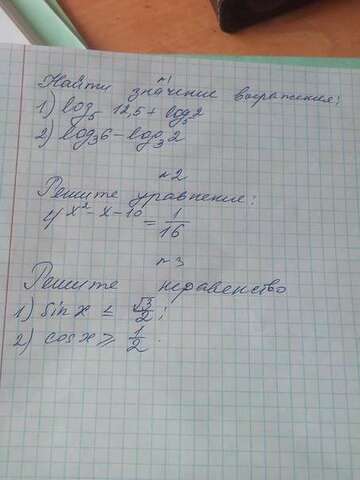 №1
Найти значение выражения:
1) log₅ 12,5 + log₅ 2
2) log₃ 6 - log₃ 2
№2
Решите уравнение:
4^(x² - x - 10) = 1/16
№3
Решите неравенство
1) sin x ≤ √3/2;
2) cos x ≥ 1/2.